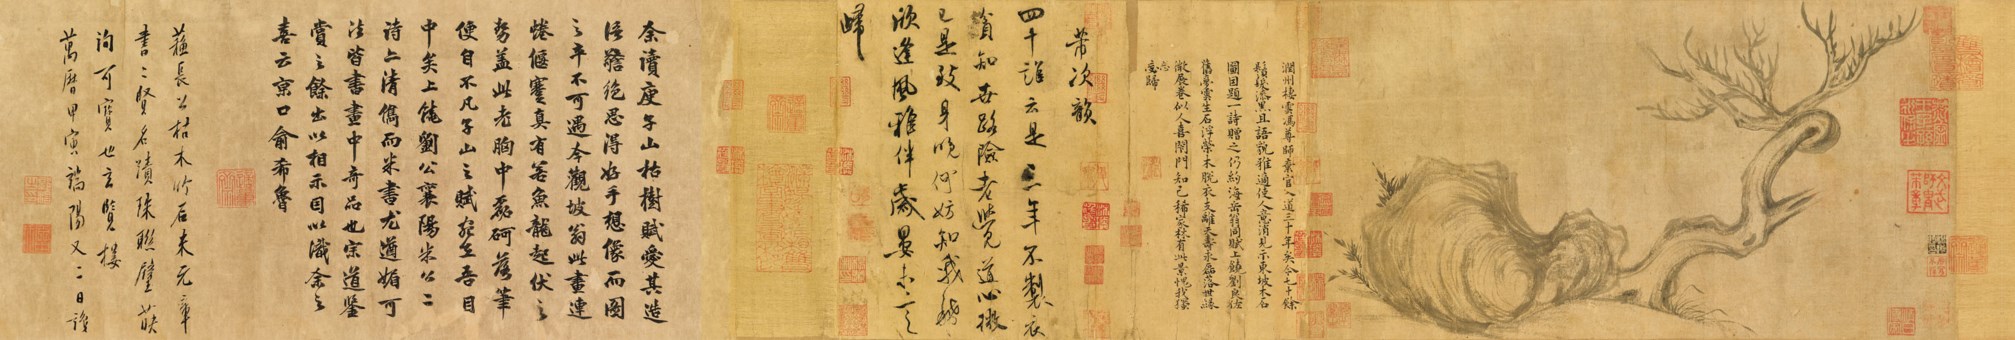 潤州棲雲馮尊師棄官入道三十年矣今七十餘
鬚髮漆黑且語貌雅適使人意消見示東坡木石
圖因題一詩贈之仍約海岳翁同賦上饒劉良佐
舊夢雲生石浮榮木脫衣支離天壽永磊落世緣
微展卷似人喜閉門知己稀家林有此景愧我獨
忘歸
芾次韻
四十誰云是三年不製衣
貧知世路險老覺道心微
已是致身晚何妨知我稀
欣逢風雅伴歲晏未言
歸
余讀庾子山枯樹賦愛其造
語警絕思得好手想像而圖
之卒不可遇今觀坡翁此畫連
蜷偃蹇真有若魚龍起伏之
勢蓋此老胸中磊砢落筆
便自不凡子山之賦宛在吾目
中矣上饒劉公襄陽米公二
詩上清儁而米書尤遒媚可
法皆書畫中奇品也宗道鑒
賞之餘出以相示因以識余之
喜云京口俞希魯
蘇長公枯木竹石米元章
書二賢名蹟珠聯璧映
洵可寶也玄覽樓
萬曆甲寅端陽又二日識